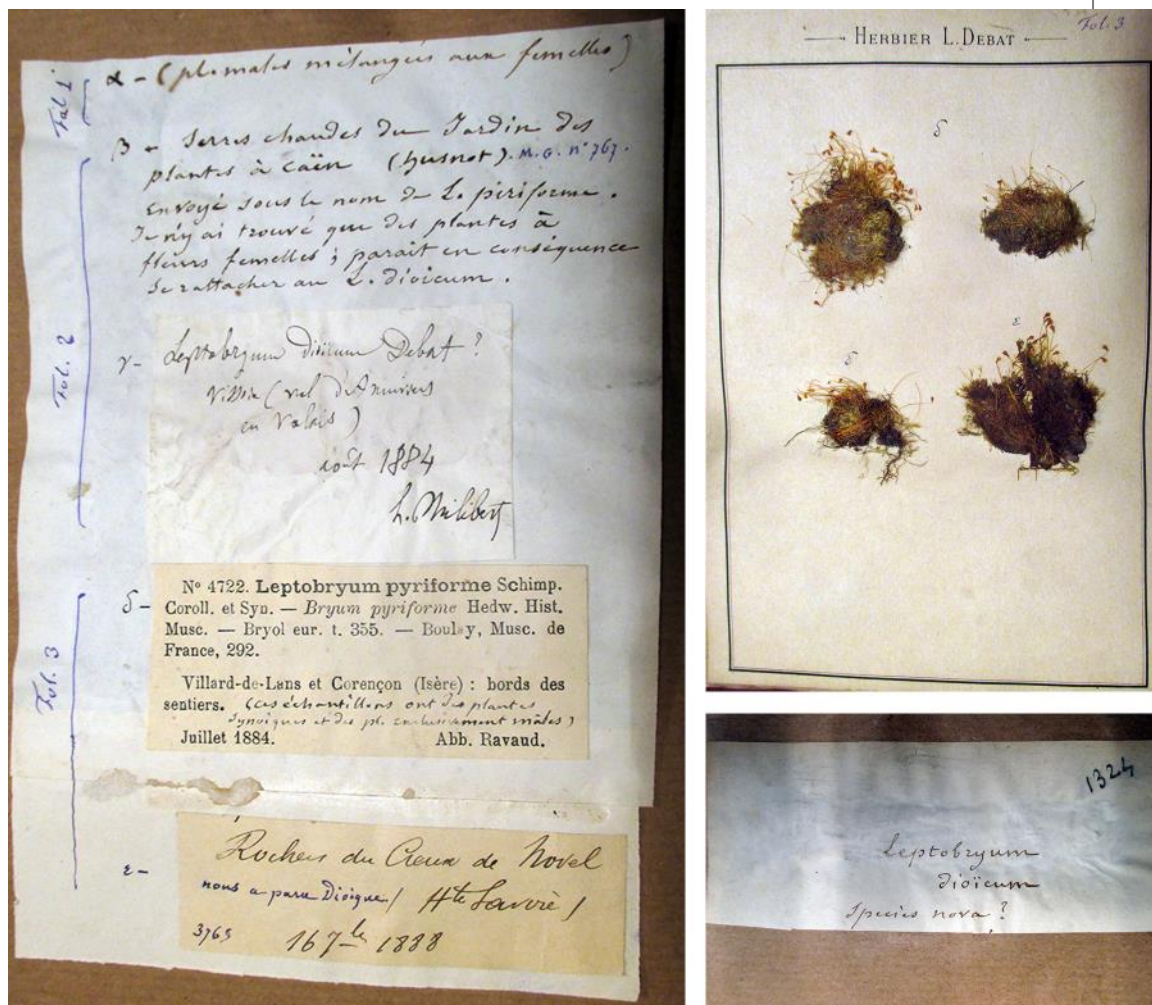 Fol. 1
α - (pl. males mélangées aux femelles)
Fol. 2
β - Serres chaudes du Jardin des
plantes à Caën (husnot). M.G. n° 767.
Envoyé sous le nom de L. piriforme.
Je n'y ai trouvé que des plantes à
fleurs femelles ; parait en conséquence
se rattacher au L. dioïcum.
γ - Leptobryum dioicum Debat ?
(val d'Anniviers
en Valais)
août 1884
h. Philibert
Fol. 3
δ - N° 4722. Leptobryum pyriforme Schimp.
Coroll. et Syn. — Bryum pyriforme Hedw. Hist.
Musc. — Bryol eur. t. 355. — Boulay, Musc. de
France, 292.
Villard-de-Lans et Corençon (Isère) : bords des
sentiers. (ces échantillons ont des plantes
synoïques et des pl. exclusivement mâles)
Juillet 1884. Abb. Ravaud.
ε - Rochers du Creux de Novel
nous a paru Dioïque / Hte Savoie /
3765 16 7bre 1888
HERBIER L. DEBAT
Fol. 3
δ
δ
ε
1324
Leptobryum
dioïcum
Species nova ?